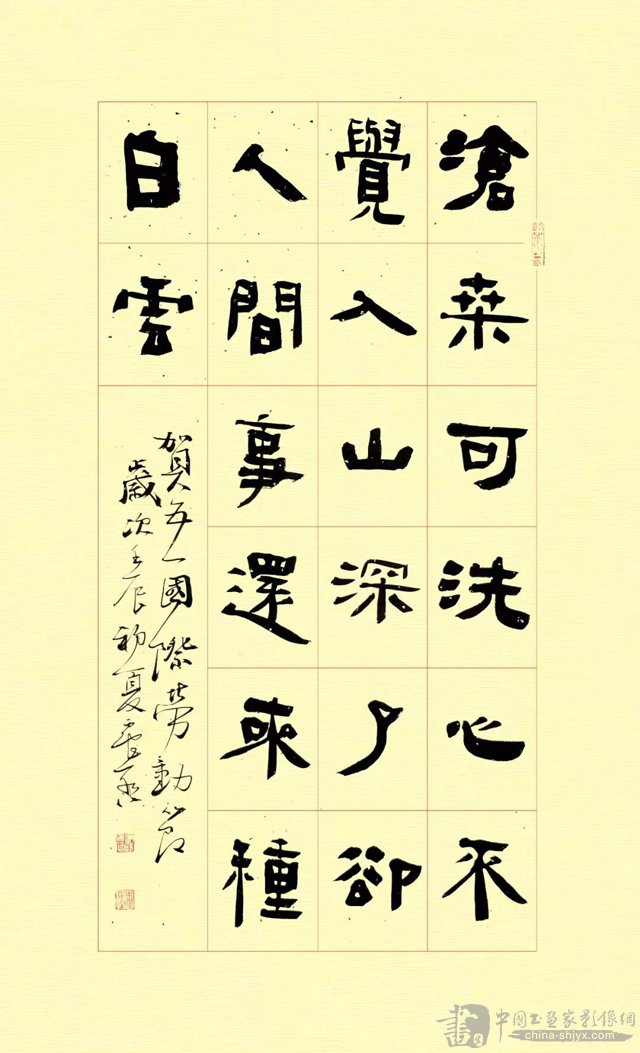 滄桒可洗心不
覺入山深了卻
人間事還來種
白雲
賀五一國際勞動節
歲次壬辰初夏
書
中國书画家影像網
china-shjyx.com